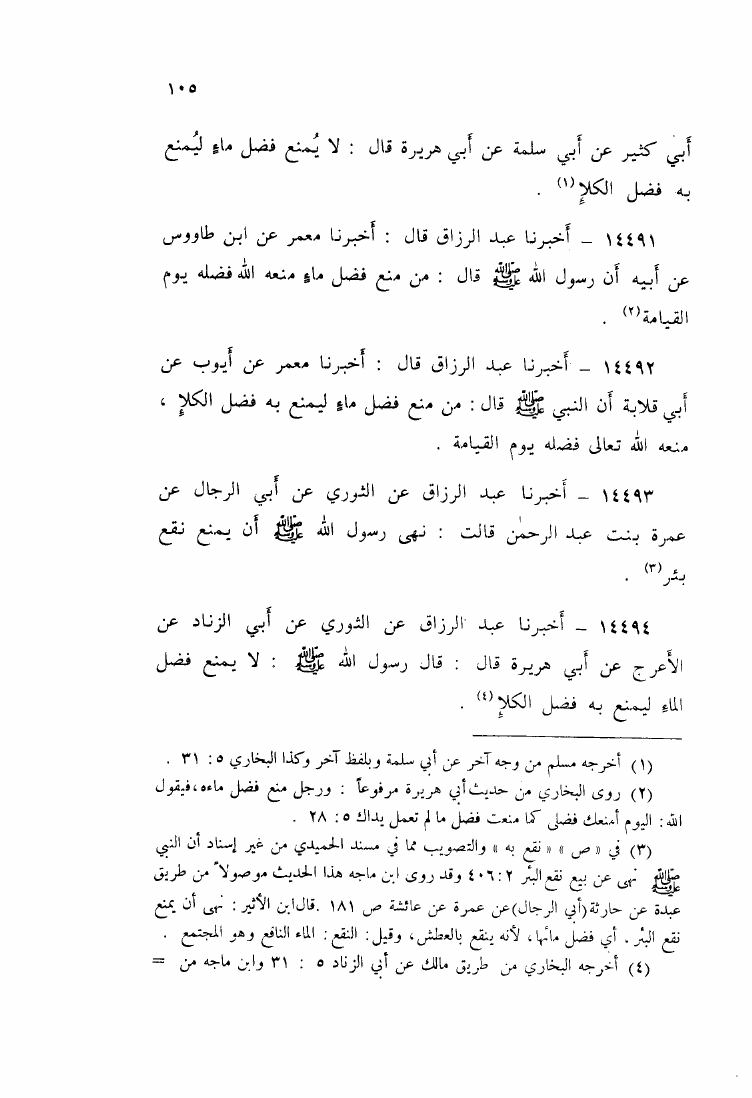 ١٠٥
أبي كثير عن أبي سلمة عن أبي هريرة قال : لا يُمنع فضل ماءٍ ليُمنع
به فضل الكلإِ(١) .
١٤٤٩١ – أخبرنا عبد الرزاق قال : أخبرنا معمر عن ابن طاووس
عن أبيه أن رسول الله ﷺ قال : من منع فضل ماءٍ منعه الله فضله يوم
القيامة(٢) .
١٤٤٩٢ – أخبرنا عبد الرزاق قال : أخبرنا معمر عن أيوب عن
أبي قلابة أن النبي ﷺ قال : من منع فضل ماءٍ ليمنع به فضل الكلإِ ،
منعه الله تعالى فضله يوم القيامة .
١٤٤٩٣ – أخبرنا عبد الرزاق عن الثوري عن أبي الرجال عن
عمرة بنت عبد الرحمٰن قالت : نهى رسول الله ﷺ أن يمنع نقع
بئر(٣) .
١٤٤٩٤ – أخبرنا عبد الرزاق عن الثوري عن أبي الزناد عن
الأعرج عن أبي هريرة قال : قال رسول الله ﷺ : لا يمنع فضل
الماءِ ليمنع به فضل الكلإِ(٤) .
(١) أخرجه مسلم من وجه آخر عن أبي سلمة وبلفظ آخر وكذا البخاري ٥ : ٣١ .
(٢) روى البخاري من حديث أبي هريرة مرفوعاً : ورجل منع فضل ماءه، فيقول
الله : اليوم أمنعك فضلى كما منعت فضل ما لم تعمل يداك ٥ : ٢٨ .
(٣) في « ص » « نقع به » والتصويب مما في مسند الحميدي من غير إسناد أن النبي
ﷺ نهى عن بيع نقع البئر ٢ : ٤٠٦ وقد روى ابن ماجه هذا الحديث موصولاً من طريق
عبدة عن حارثة (أبي الرجال) عن عمرة عن عائشة ص ١٨١ . قال ابن الأثير : نهى أن يمنع
نقع البئر . أي فضل مائها، لأنه ينقع بالعطش، وقيل : النقع : الماء النافع وهو المجتمع .
(٤) أخرجه البخاري من طريق مالك عن أبي الزناد ٥ : ٣١ وابن ماجه من =